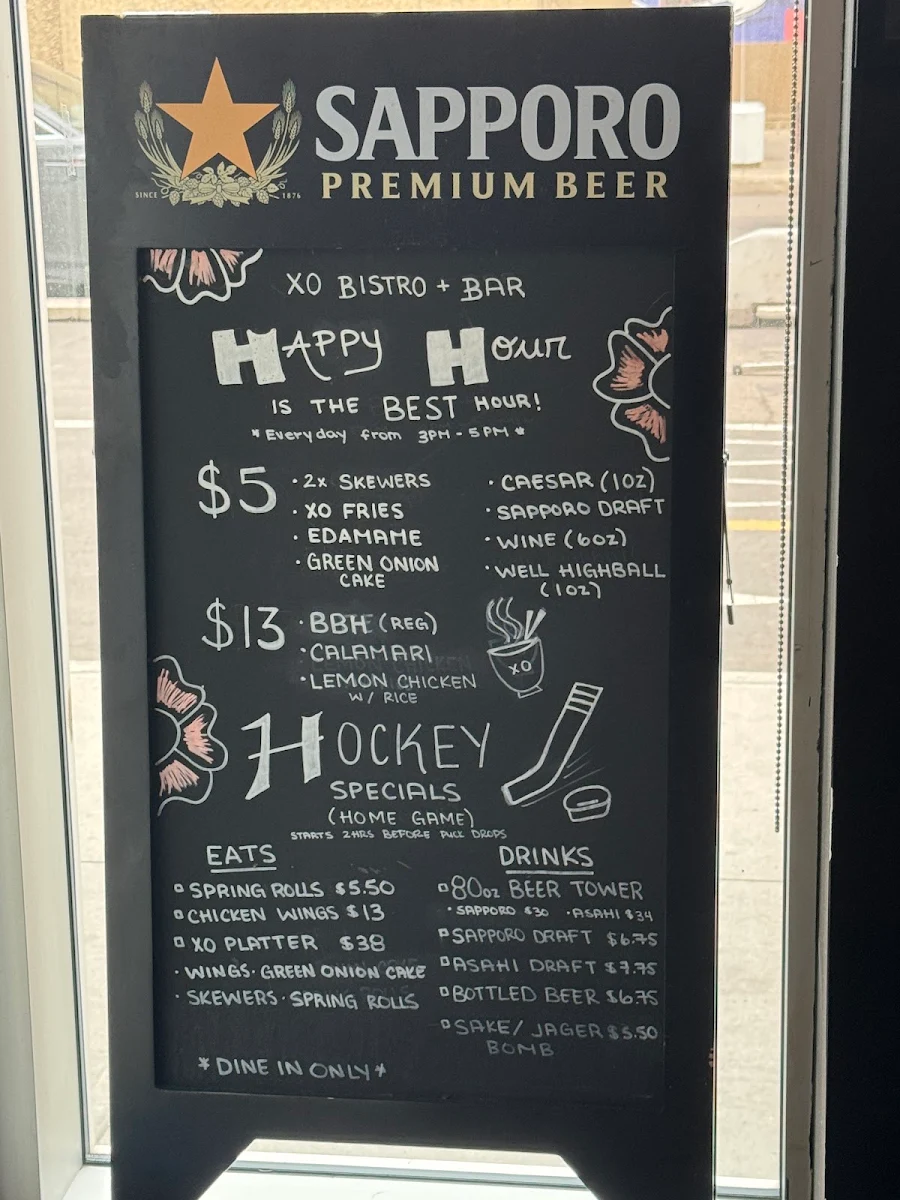 SAPPORO
PREMIUM BEER
SINCE 1876
XO BISTRO + BAR
HAPPY HOUR
IS THE BEST HOUR!
* Everyday from 3PM - 5PM *
$5
· 2x SKEWERS
· XO FRIES
· EDAMAME
· GREEN ONION
CAKE
· CAESAR (1OZ)
· SAPPORO DRAFT
· WINE (6OZ)
· WELL HIGHBALL
(1OZ)
$13
· BBH (REG)
· CALAMARI
· LEMON CHICKEN
W/ RICE
XO
HOCKEY
SPECIALS
(HOME GAME)
STARTS 2HRS BEFORE PUCK DROPS
EATS
▫ SPRING ROLLS $5.50
▫ CHICKEN WINGS $13
▫ XO PLATTER $38
· WINGS · GREEN ONION CAKE
· SKEWERS · SPRING ROLLS
DRINKS
▫ 80oz BEER TOWER
· SAPPORO $30 · ASAHI $34
▫ SAPPORO DRAFT $6.75
▫ ASAHI DRAFT $7.75
▫ BOTTLED BEER $6.75
▫ SAKE/ JAGER $5.50
BOMB
* DINE IN ONLY *